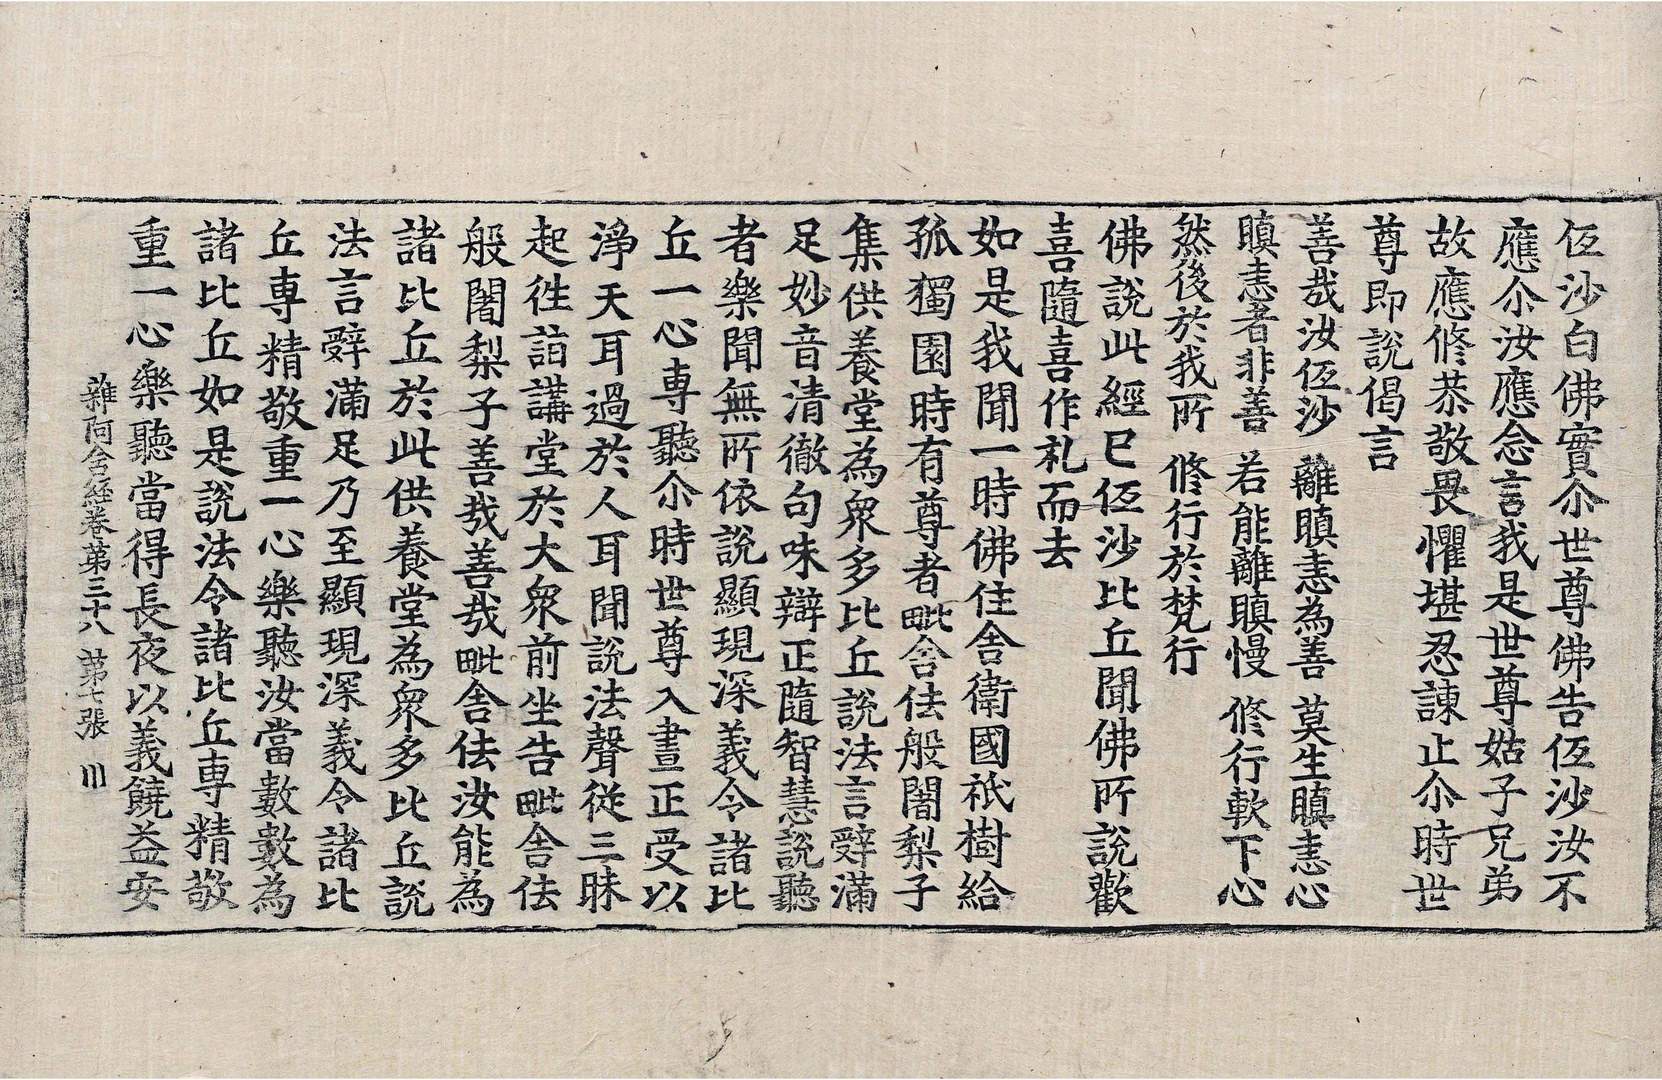 伍沙白佛實尒世尊佛告伍沙汝不
應尒汝應念言我是世尊姑子兄弟
故應修恭敬畏懼堪忍諫止尒時世
尊即說偈言
善哉汝伍沙　離瞋恚為善　莫生瞋恚心
瞋恚者非善　若能離瞋慢　修行軟下心
然後於我所　修行於梵行
佛說此經已伍沙比丘聞佛所說歡
喜隨喜作礼而去
如是我聞一時佛住舍衛國祇樹給
孤獨園時有尊者毗舍佉般闍梨子
集供養堂為衆多比丘說法言辝滿
足妙音清徹句味辯正隨智慧說聽
者樂聞無所依說顯現深義令諸比
丘一心專聽尒時世尊入晝正受以
淨天耳過於人耳聞說法聲從三昧
起徃詣講堂於大衆前坐告毗舍佉
般闍梨子善哉善哉毗舍佉汝能為
諸比丘於此供養堂為衆多比丘說
法言辝滿足乃至顯現深義令諸比
丘專精敬重一心樂聽汝當數數為
諸比丘如是說法令諸比丘專精敬
重一心樂聽當得長夜以義饒益安
雜阿含經卷第三十八　第七張　川